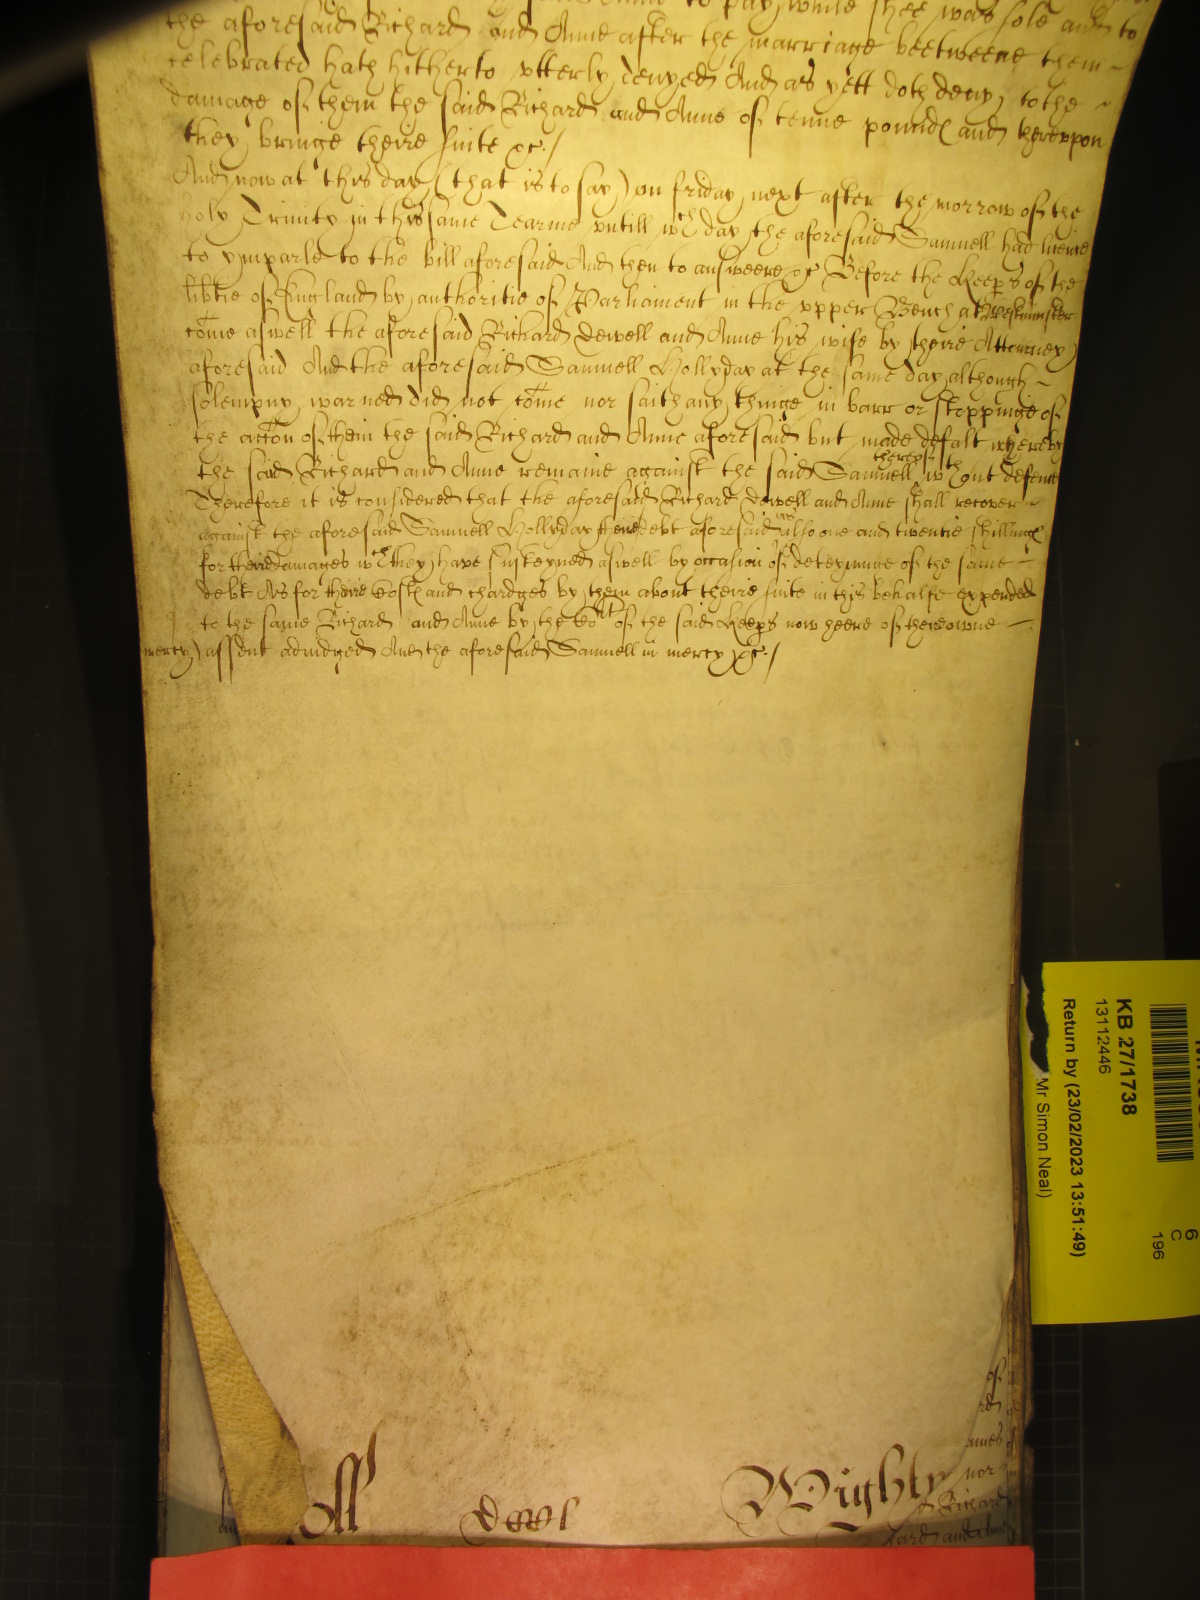 to pay while shee was sole and to
the aforesaid Richard and Anne after the marriage beetweene them
celebrated hath hitherto vtterly denyed And as yett doth deny to the
damage of them the said Richard and Anne of tenne pound and therevpon
they bringe theire suite &c./
And now at this day (that is to say) on friday next after the morrow of the
holy Trinity in this same Tearme vntill wch day the aforesaid Samuell had licence
to ymparle to the bill aforesaid And then to answeere &c Before the Keeps of the
libtie of England by authoritie of Parliament in the vpper Bench at Westminster
come aswell the aforesaid Richard Dewell and Anne his wife by theire Attorney
aforesaid And the aforesaid Samuell Hollyday at the same day although
solempny warned did not come nor saith any thinge in barr or stoppinge of
the accon of them the said Richard and Anne aforesaid but made defalt whereby
the said Richard and Anne remaine against the said Samuell therevpon wthout defence
Therefore it is considered that the aforesaid Richard Dewell and Anne shall recover
against the aforesaid Samuell Hollyday theire debt aforesaid and also one and twentie shilling
for theire damages wch they have susteyned aswell by occasion of deteyninge of the same
debt As for theire Cost and chardges by them about theire suite in this behalfe expended
to the same Richard and Anne by the Cort of the said Keeps now heere of theire owne
mercy) assent adiudged And the aforesaid Samuell in mercy &c./
of
rd
ames
nor
Richard
Wighty
KB 27/1738
13112446
Return by (23/02/2023 13:51:49)
Mr Simon Neal)
6
C
196